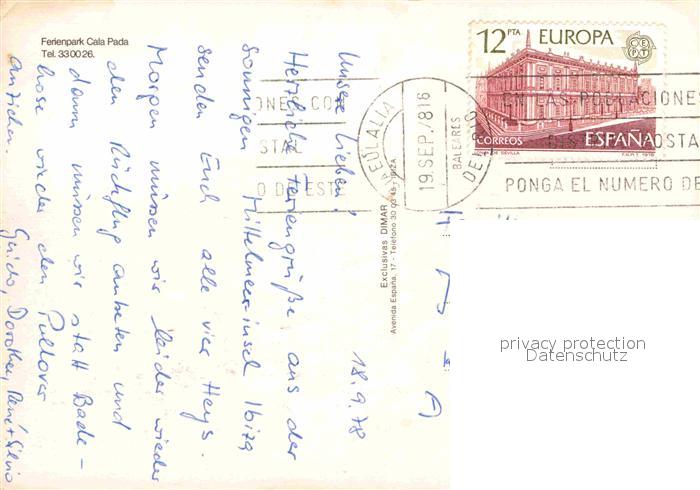 Ferienpark Cala Pada
Tel. 330026.
18.9.78
Unsere Lieben!
Herzliche Feriengrüße aus der
sonnigen Mittelmeerinsel Ibiza
senden Euch alle vier Heys.
Morgen müssen wir leider wieder
den Rückflug antreten und
dann müssen wir statt Bade-
hose wieder den Pullover
anziehen.
Guido, Dorothea, René + Silvio
Exclusivas DIMAR
Avenida España, 17 - Teléfono 30 03 45 - IBIZA
12 PTA EUROPA
CEPT
CORREOS ESPAÑA
DE SEVILLA
EULALIA
19.SEP.78 16
BALEARES
EN LAS POBLACIONES
DIST OSTA
PONGA EL NUMERO DE
privacy protection
Datenschutz